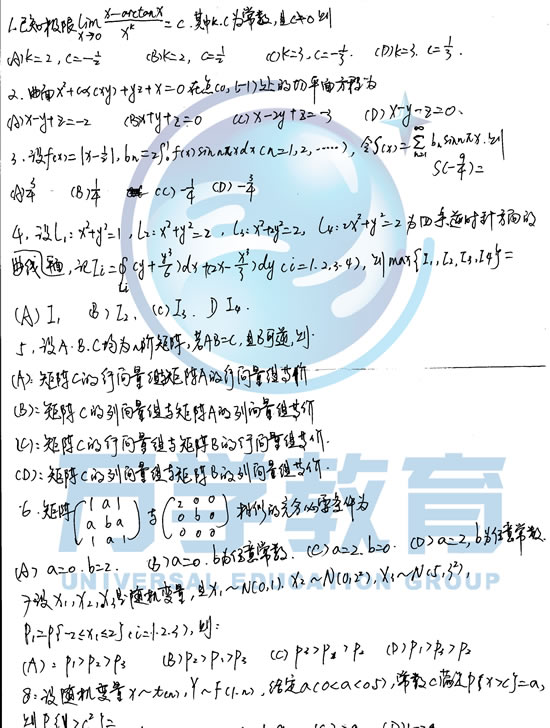 1.已知极限lim x→0 (x-arctanx)/x^k = c.其中k.c为常数,且c≠0则
(A)k=2, c=-1/2 (B)k=2, c=1/2 (C)k=3. c=-1/3. (D)k=3. c=1/3.
2.曲面x²+cos(xy)+yz+x=0在点(0,1,-1)处的切平面方程为
(A)x-y+z=-2 (B)x+y+z=0 (C)x-2y+z=-3 (D)x-y-z=0.
3.设f(x)=|x-1/2|, bn=2∫₀¹f(x)sin nπx dx (n=1,2,……), 令S(x)=∑ n=1 ∞ bn sin nπx.则
S(-9/4)=
(A)3/4 (B)1/4 (C)-1/4 (D)-3/4
4.设L₁:x²+y²=1, L₂:x²+y²=2, L₃:x²+2y²=2, L₄:2x²+y²=2为四条逆时针方向的
曲线,记Ii=∮Li(y+y³/6)dx+(2x-x³/3)dy(i=1.2.3.4),则max{I₁,I₂,I₃,I₄}=
(A) I₁ B) I₂. (C)I₃. D I₄.
5.设A.B.C均为n阶矩阵,若AB=C,且B可逆,则.
(A):矩阵C的行向量组与矩阵A的行向量组等价
(B):矩阵C的列向量组与矩阵A的列向量组等价
(C):矩阵C的行向量组与矩阵B的行向量组等价.
(D):矩阵C的列向量组与矩阵B的列向量组等价.
6.矩阵(1 a 1 / a b a / 1 a 1)与(2 0 0 / 0 b 0 / 0 0 0)相似的充分必要条件为
(A) a=0.b=2. (B)a=0.b为任意常数. (C)a=2.b=0. (D)a=2,b为任意常数.
7设X₁,X₂,X₃是随机变量,且X₁~N(0,1).X₂~N(0,2²),X₃~N(5,3²),
P₁=P{-2≤x₁≤2}(i=1.2.3),则:
(A):P₁>P₂>P₃ (B)P₂>P₁>P₃ (C)P₃>P₁>P₂ (D)P₁>P₃>P₂
8:设随机变量X~t(n),Y~F(1.n),给定a(0<a<0.5),常数c满足P{X>c}=a,
则P{Y>c²}=
周学教育
UNIVERSAL EDUCATION GROUP